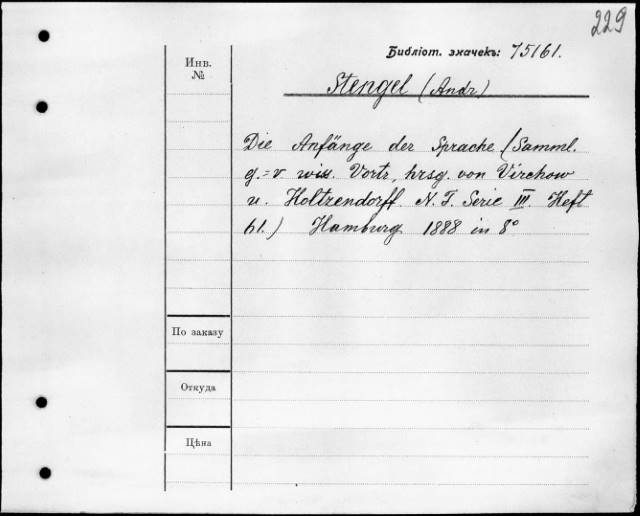 229
Библіот. значекъ: 75161.
Инв.
№
Stengel (Andr)
Die Anfänge der Sprache (Samml.
g.=v. wiss. Vortr. hrsg. von Virchow
u. Holtzendorff. N. F. Serie III. Heft
61.) Hamburg 1888 in 8°
По заказу
Откуда
Цѣна